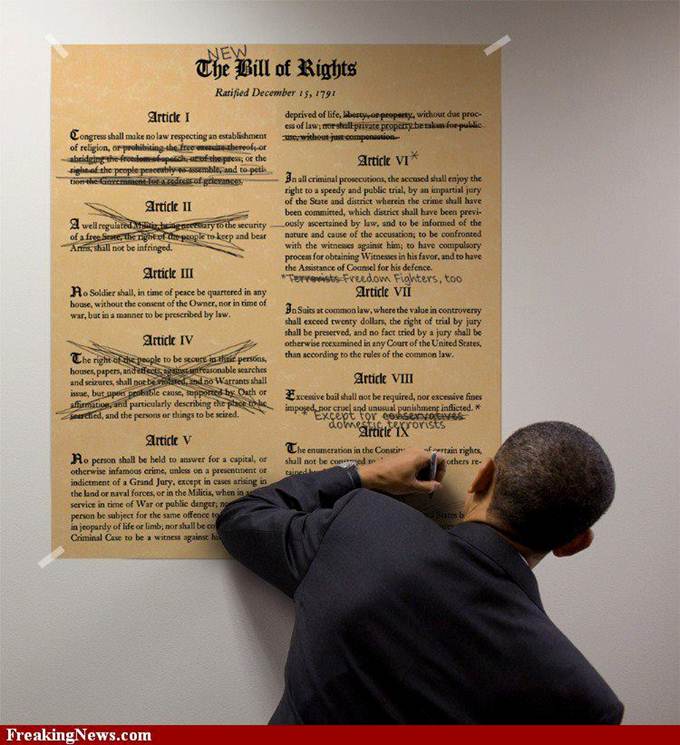 NEW
The Bill of Rights
Ratified December 15, 1791
Article I
Congress shall make no law respecting an establishment
of religion, or prohibiting the free exercise thereof; or
abridging the freedom of speech, or of the press; or the
right of the people peaceably to assemble, and to peti-
tion the Government for a redress of grievances.
Article II
A well regulated Militia, being necessary to the security
of a free State, the right of the people to keep and bear
Arms, shall not be infringed.
Article III
No Soldier shall, in time of peace be quartered in any
house, without the consent of the Owner, nor in time of
war, but in a manner to be prescribed by law.
Article IV
The right of the people to be secure in their persons,
houses, papers, and effects, against unreasonable searches
and seizures, shall not be violated, and no Warrants shall
issue, but upon probable cause, supported by Oath or
affirmation, and particularly describing the place to be
searched, and the persons or things to be seized.
Article V
No person shall be held to answer for a capital, or
otherwise infamous crime, unless on a presentment or
indictment of a Grand Jury, except in cases arising in
the land or naval forces, or in the Militia, when in
service in time of War or public danger;
person be subject for the same offence to
in jeopardy of life or limb; nor shall be
Criminal Case to be a witness against
deprived of life, liberty, or property, without due proc-
ess of law; nor shall private property be taken for public
use, without just compensation.
Article VI*
In all criminal prosecutions, the accused shall enjoy the
right to a speedy and public trial, by an impartial jury
of the State and district wherein the crime shall have
been committed, which district shall have been previ-
ously ascertained by law, and to be informed of the
nature and cause of the accusation; to be confronted
with the witnesses against him; to have compulsory
process for obtaining Witnesses in his favor, and to have
the Assistance of Counsel for his defence.
*Terrorists Freedom Fighters, too
Article VII
In Suits at common law, where the value in controversy
shall exceed twenty dollars, the right of trial by jury
shall be preserved, and no fact tried by a jury shall be
otherwise reexamined in any Court of the United States,
than according to the rules of the common law.
Article VIII
Excessive bail shall not be required, nor excessive fines
imposed, nor cruel and unusual punishment inflicted. *
* Except for conservatives
domestic terrorists
Article IX
The enumeration in the of certain rights,
shall not be others re-
FreakingNews.com